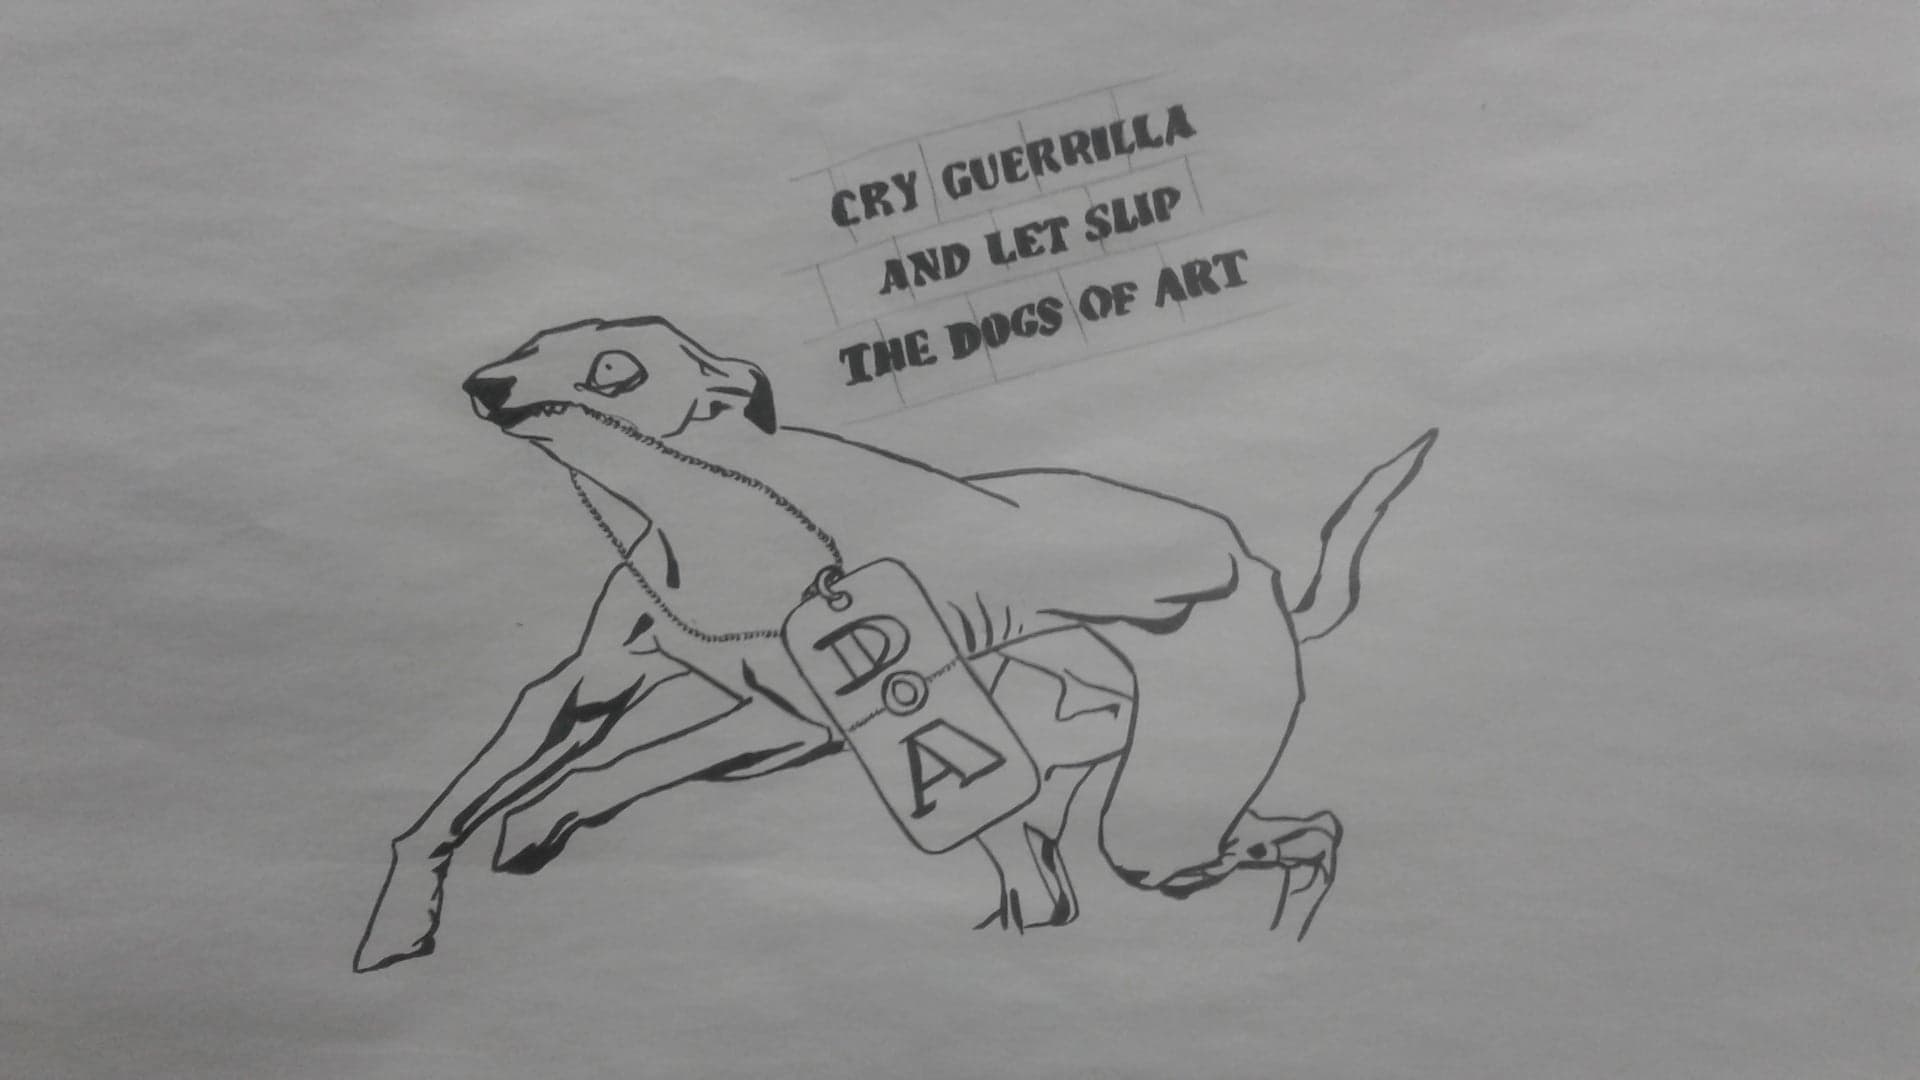 CRY GUERRILLA
AND LET SLIP
THE DOGS OF ART
D
O
A